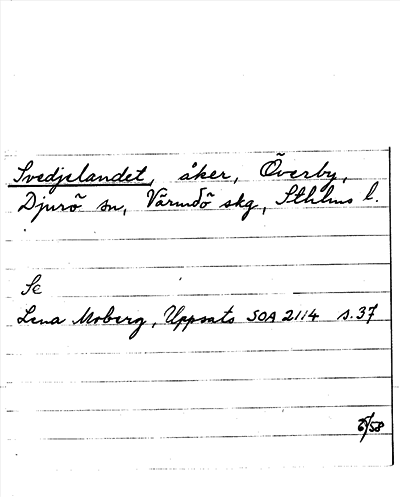 Svedjelandet, åker, Överby,
Djurö sn, Värmdö skg, Sthlms l.
Se
Lena Moberg, Uppsats SOA 2114 s. 37
/58